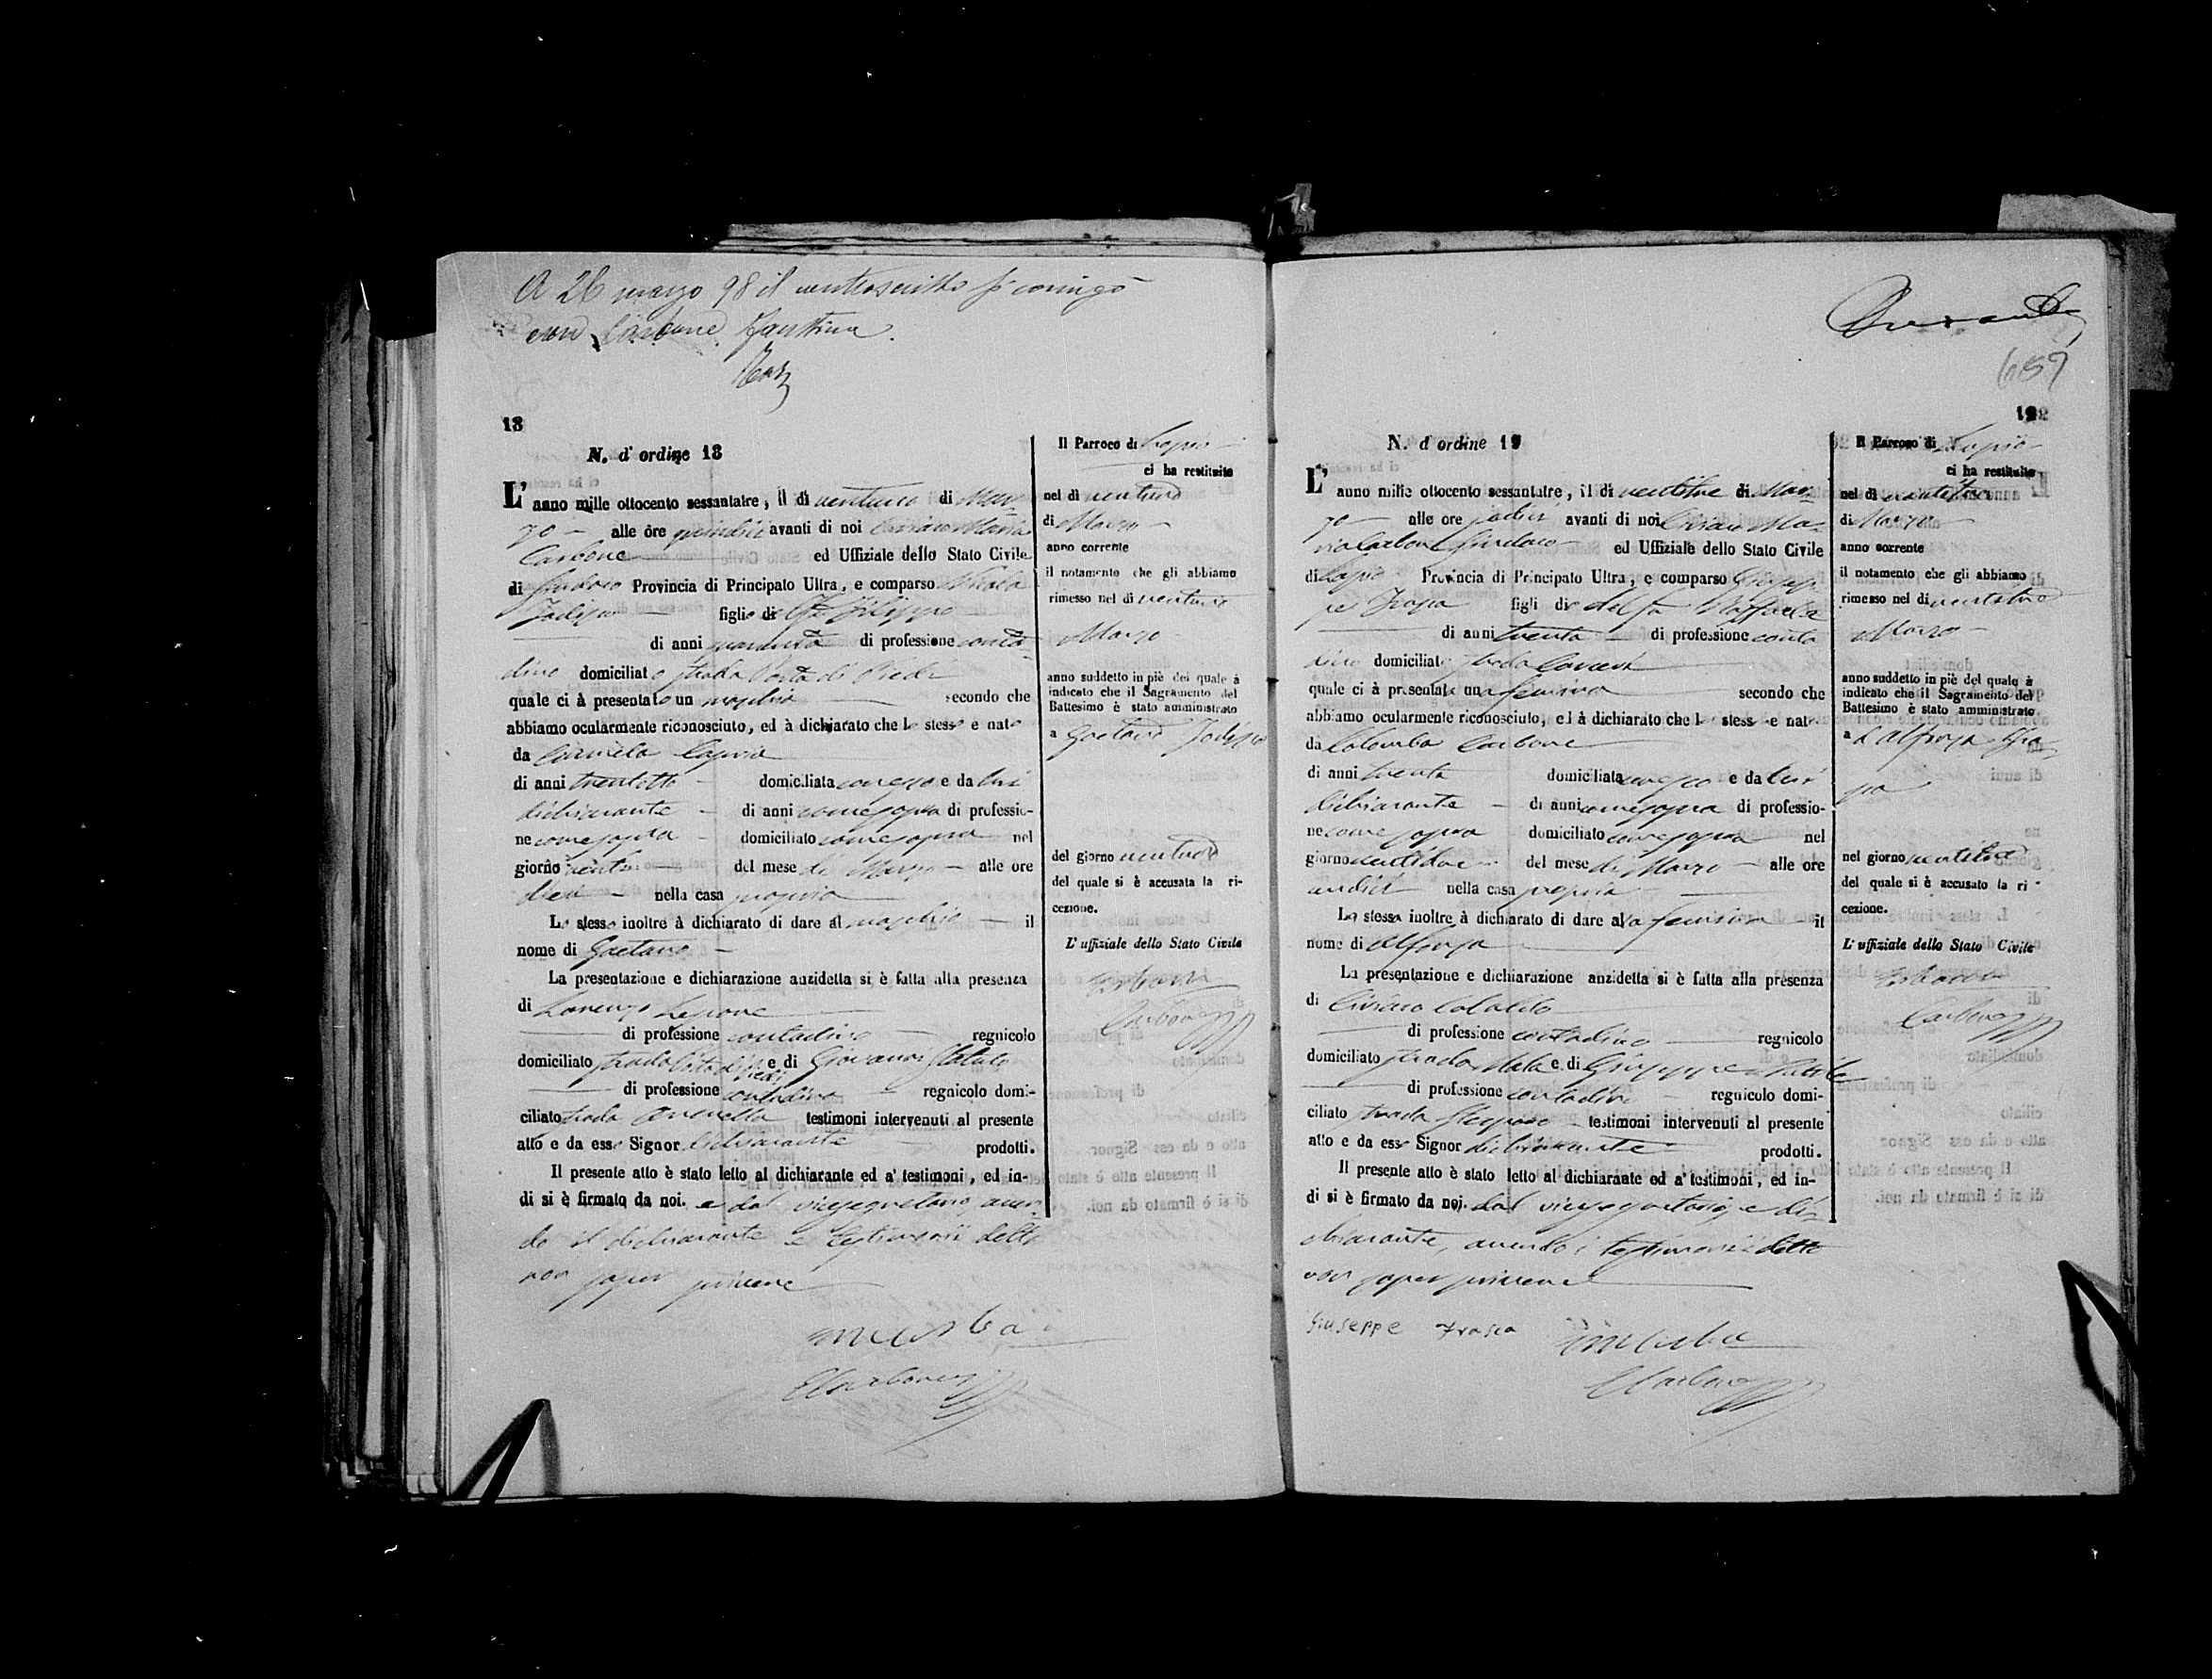 A 26 marzo 98 il controscritto si coniugò
con Carbone Faustina.
18
N. d'ordine 18
L'anno mille ottocento sessantatre, il di ventuno di Mar
zo alle ore quindici avanti di noi Ciriaco Maria
Carbone ed Uffiziale dello Stato Civile
di Sindaco Provincia di Principato Ultra, e comparso Nicola
figlio di Filippo
di anni di professione conta
dino domiciliato strada Porta di Piedi
quale ci à presentato un maschio secondo che
abbiamo ocularmente riconosciuto, ed à dichiarato che lo stesso e nato
da Carmela
di anni trentotto domiciliata e da lui
dichiarante di anni come sopra di professio-
ne come sopra domiciliato come sopra nel
giorno venti del mese di Marzo alle ore
dieci nella casa propria
Lo stesso inoltre à dichiarato di dare al maschio il
nome di Gaetano
La presentazione e dichiarazione anzidetta si è fatta alla presenza
di Lorenzo Lepore
di professione contadino regnicolo
domiciliato strada Porta di Piedi e di Giovanni
di professione contadino regnicolo domi-
ciliato strada testimoni intervenuti al presente
atto e da esso Signor dichiarante prodotti.
Il presente atto è stato letto al dichiarante ed a' testimoni, ed in-
di si è firmato da noi. e dal vicesegretario, aven
do il dichiarante e testimonii detto
non saper scrivere
Il Parroco di Lapio
ci ha restituito
nel dì ventuno
di Marzo
anno corrente
il notamento che gli abbiamo
rimesso nel di ventuno
Marzo
anno suddetto in piè del quale à
indicato che il Sagramento del
Battesimo è stato amministrato
a Gaetano
del giorno ventuno
del quale si è accusata la ri-
cezione.
L'uffiziale dello Stato Civile
Carbone
659
19
N. d'ordine 19
L'anno mille ottocento sessantatre, il di ventitre di Mar
zo alle ore sedici avanti di noi Ciriaco Ma
ria Carbone Sindaco ed Uffiziale dello Stato Civile
di Lapio Provincia di Principato Ultra, e comparso Giusep
pe Frasca figli di del fu Raffaele
di anni trenta di professione conta
dino domiciliato strada
quale ci à presentata una femina secondo che
abbiamo ocularmente riconosciuto, ed à dichiarato che l stess e nat
da Colomba Carbone
di anni trenta domiciliata e da lui
dichiarante di anni come sopra di professio-
ne come sopra domiciliato come sopra nel
giorno ventidue del mese di Marzo alle ore
undici nella casa propria
Lo stesso inoltre à dichiarato di dare alla femina il
nome di
La presentazione e dichiarazione anzidetta si è fatta alla presenza
di Ciriaco
di professione contadino regnicolo
domiciliato strada e di Giuseppe
di professione contadino regnicolo domi-
ciliato strada testimoni intervenuti al presente
atto e da esso Signor dichiarante prodotti.
Il presente atto è stato letto al dichiarante ed a' testimoni, ed in-
di si è firmato da noi. dal vicesegretario, e di-
chiarante, avendo i testimonii detto
non saper scrivere
Giuseppe Frasca
Il Parroco di Lapio
ci ha restituito
nel di ventitre
di Marzo
anno corrente
il notamento che gli abbiamo
rimesso nel di ventitre
Marzo
anno suddetto in piè del quale à
indicato che il Sagramento del
Battesimo è stato amministrato
nel giorno ventitre
del quale si è accusato la ri-
cezione.
L'uffiziale dello Stato Civile
Carbone